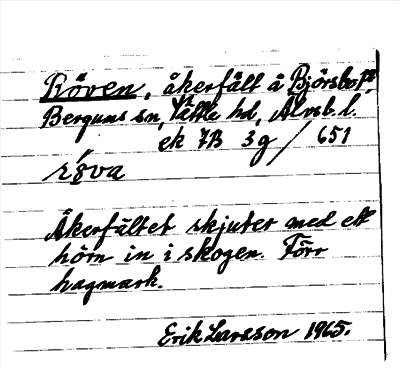 Röven, åkerfält å Björsbo 1:2,
Bergums sn, Vättle hd, Älvsb. l.
ek 7B 3g / 651
Åkerfältet skjuter med ett
hörn in i skogen. Förr
hagmark.
Erik Larsson 1965.